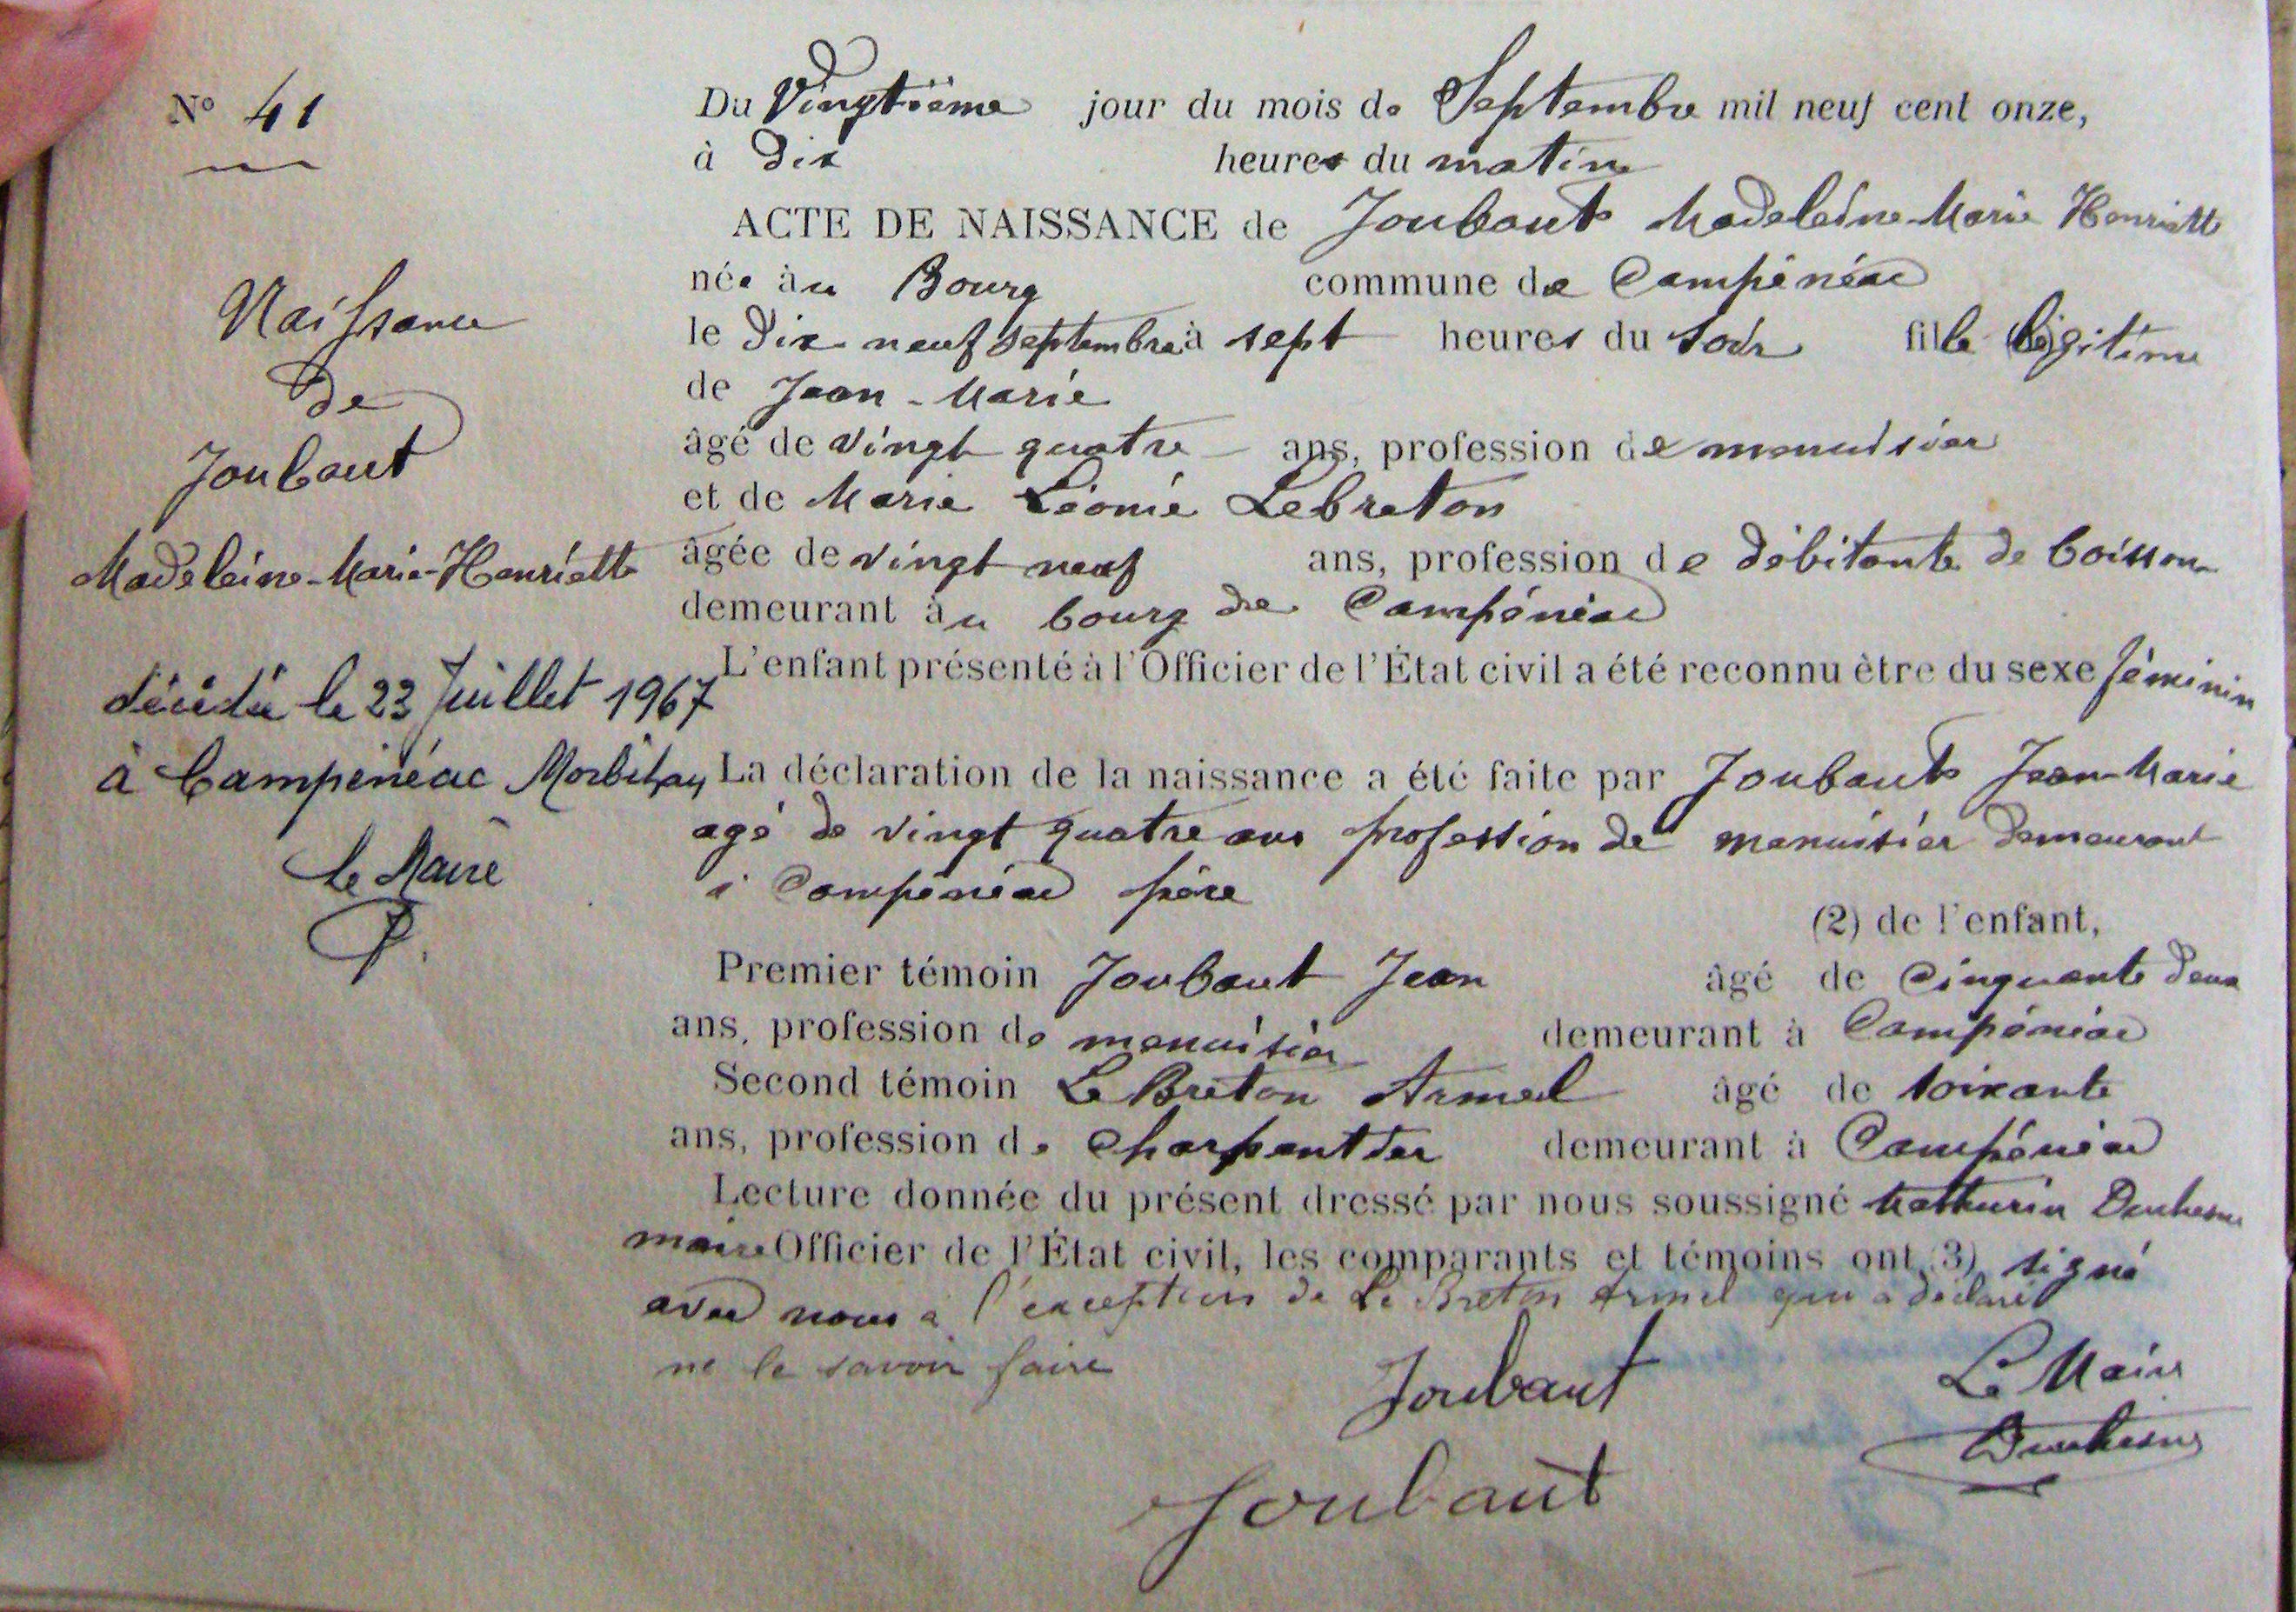 N° 41
Naissance
de
Joubaut
Madeleine-Marie-Henriette
décédée le 23 Juillet 1967
à Campénéac Morbihan
Le Maire
Du Vingtième jour du mois de Septembre mil neuf cent onze,
à Dix heures du matin
ACTE DE NAISSANCE de Joubaut Madeleine-Marie Henriette
née au Bourg commune de Campénéac
le Dix neuf Septembre à sept heures du soir fille légitime
de Jean-Marie
âgé de vingt quatre ans, profession de menuisier
et de Marie Léonie Lebreton
âgée de vingt neuf ans, profession de débitante de boisson
demeurant au bourg de Campénéac
L'enfant présenté à l'Officier de l'État civil a été reconnu être du sexe féminin
La déclaration de la naissance a été faite par Joubaut Jean-Marie
agé de vingt quatre ans profession de menuisier demeurant
à Campénéac père
(2) de l'enfant,
Premier témoin Joubaut Jean âgé de cinquante deux
ans, profession de menuisier demeurant à Campénéac
Second témoin Le Breton Armel âgé de soixante
ans, profession de charpentier demeurant à Campénéac
Lecture donnée du présent dressé par nous soussigné Mathurin Duchesne
maire Officier de l'État civil, les comparants et témoins ont (3) signé
avec nous à l'exception de Le Breton Armel qui a déclaré
ne le savoir faire
Joubaut
Le Maire
Duchesne
Joubaut